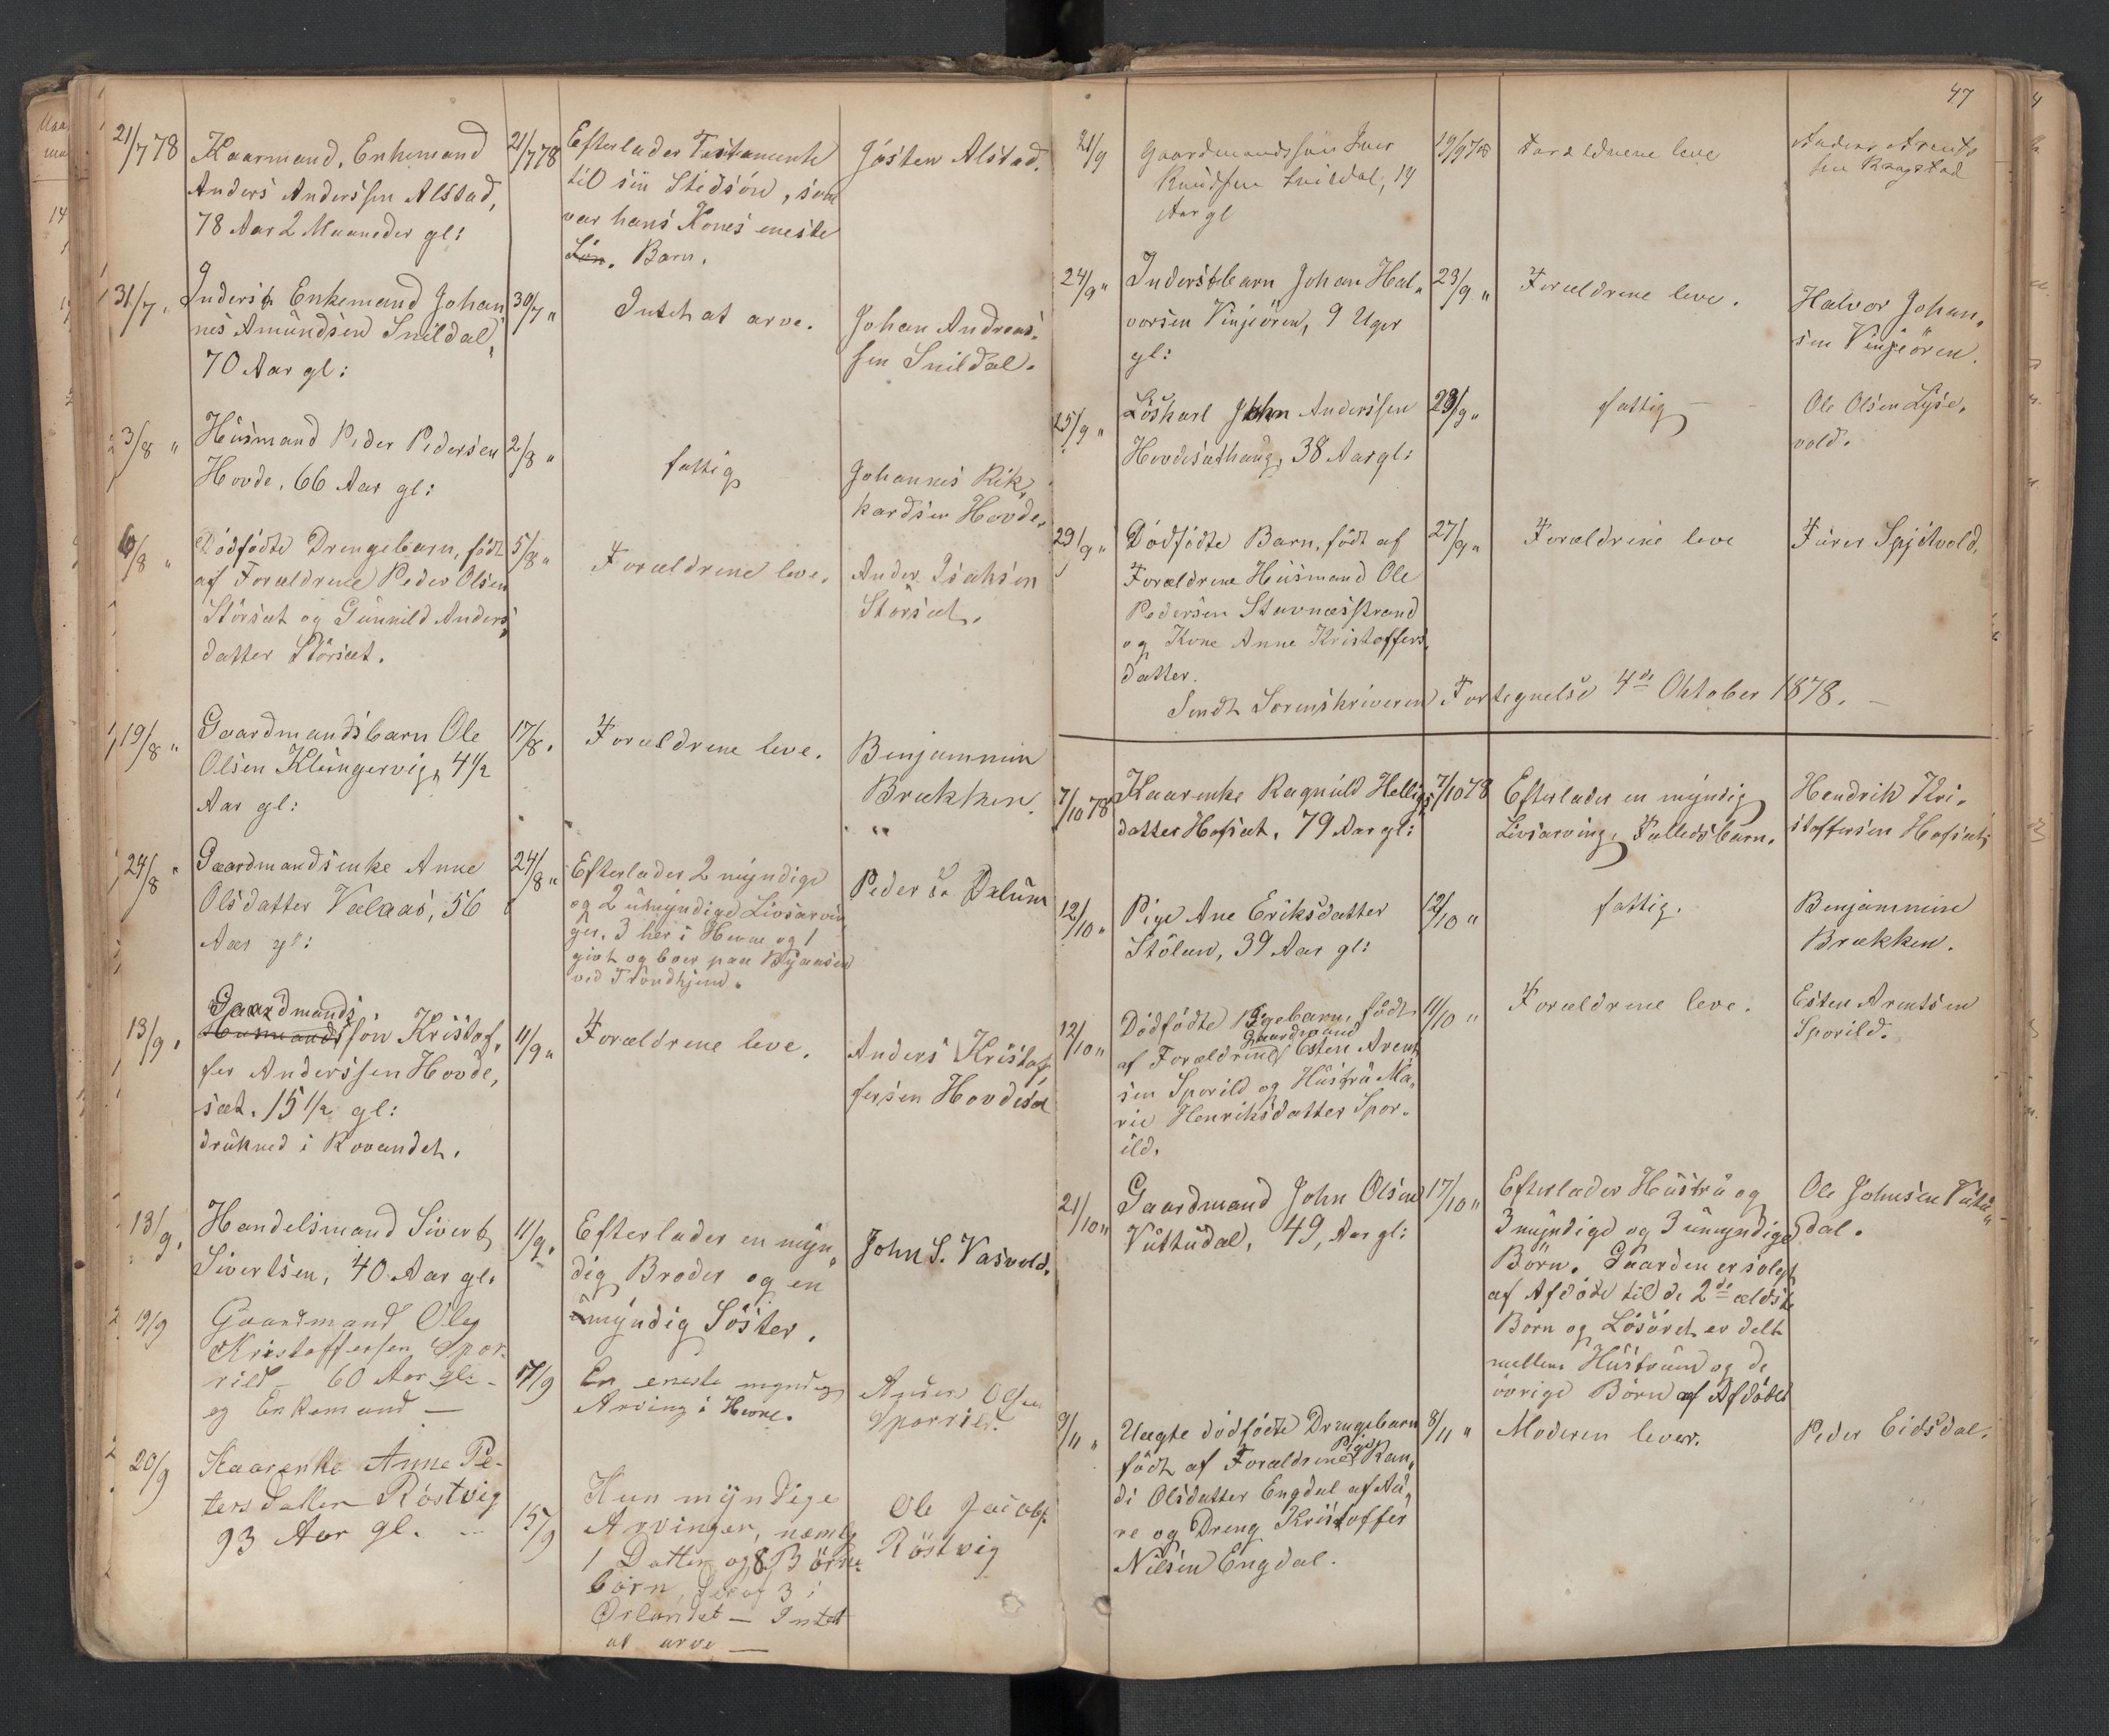 21/7 78 Kaarmand, Enkemand 21/7 78 Efterlader Testamente Josten Alstad.
Anders Anderssen Alstad, til sin Stedsön, som
78 Aar 2 Maaneder gl: var hans Kones eneste
Sön. Barn.
31/7 " Inderst Enkemand Johan 30/7 " Intet at arve. Johan Andreas
nes Amundsen Snildal, sen Snildal.
70 Aar gl:
3/8 " Husmand Peder Pedersen 2/8 " fattig Johannes Rik
Hovde, 66 Aar gl: hardsen Hovde.
6/8 " Dödfödte Drengebarn, födt 5/8 " Forældrene leve. Anders Isaksen
af Forældrene Peder Olsen Störsæt.
Störsæt og Gunnild Anders
datter Störsæt.
19/8 " Gaardmandsbarn Ole 17/8 " Forældrene leve. Benjammin
Olsen Klungervig, 4 1/2 Brækken.
Aar gl:
24/8 " Gaardmandsenke Anne 24/8 " Efterlader 2 myndige Peder S. Dalum
Olsdatter Valaas, 56 og 2 umyndige Livsarvin
Aar gl: ger, 3 her i Hevne og 1
givt og boer paa Byaasen
ved Trondhjem.
Gaardmands
13/9 " Husmands sön Kristof 11/9 " Forældrene leve. Anders Kristof
fer Anderssen Hovde, fersen Hovdesæt
sæt. 15 1/2 gl:
druknet i Rovandet.
13/9 " Handelsmand Sivert 11/9 " Efterlader en myn John S. Vasvold.
Sivertsen, 40 Aar gl: dig Broder og en
umyndig Söster.
19/9 Gaardmand Ole
Kristoffersen Spor-
rild - 60 Aar gl: - 17/9 En eneste myndig Anders Olsen
og Enkemand — Arving i Hevne. Sporrild.
20/9 Kaarenke Anne Pe-
ters Datter Röstvig 15/9 Kun myndige Ole Jacobs.
93 Aar gl. Arvinger, nemlig Röstvig
1 Datter og 8 Börne-
börn, deraf 3 i
Ørlandet — Intet
at arve —
47
21/9 Gaardmandssön Iver 19/9 78 Forældrene leve Anders Arent
Knudsen Snildal, 14 sen Krogstad
Aar gl
24/9 " Inderstbarn Johan Hal 23/9 " Forældrene leve. Halvor Johan
vorsen Vinjeören, 9 Uger sen Vinjeören.
gl:
25/9 " Löskarl John Anderssen 23/9 " fattig — Ole Olsen Lyse
Hovdesæthaug, 38 Aar gl: vold.
29/9 " Dödfödte Barn, födt af 27/9 " Forældrene leve Furer Spjötvold.
Forældrene Husmand Ole
Pedersen Stavnæsstrand
og Kone Anne Kristoffers
datter.
Sendt Sorenskriveren Fortegnelse 4de Oktober 1878. —
7/10 78 Kaarenke Ragnild Hellings 7/10 78 Efterlader en myndig Hendrik Kri
datter Hofsæt, 79 Aar gl: Livsarving, Fælledsbarn. stoffersen Hofsæt.
12/10 " Pige Ane Eriksdatter 12/10 " fattig. Benjammin
Stölan, 39 Aar gl: Brækken.
12/10 " Dödfödte Pigebarn, födt 11/10 " Forældrene leve. Esten Arentsen
Gaardmand
af Forældrene Esten Arent Sporild.
sen Sporild og Hustru Ma
rie Henriksdatter Spor
ild.
21/10 " Gaardmand John Olsen 17/10 " Efterlader Hustru og Ole Johnsen Vuttu
Vuttudal, 49, Aar gl: 3 myndige og 3 umyndige dal.
Börn. Gaarden er solgt
af Afdöde til de 2de ældste
Börn og Lösöret er delt
mellem Hustruen og de
övrige Börn af Afdöde
9/11 " Uægte dödfödte Drengebarn 8/11 " Moderen lever. Peder Eidsdal.
Pige
födt af Forældrene Ran
di Olsdatter Engdal af Au
re og Dreng Kristoffer
Nilsen Engdal.